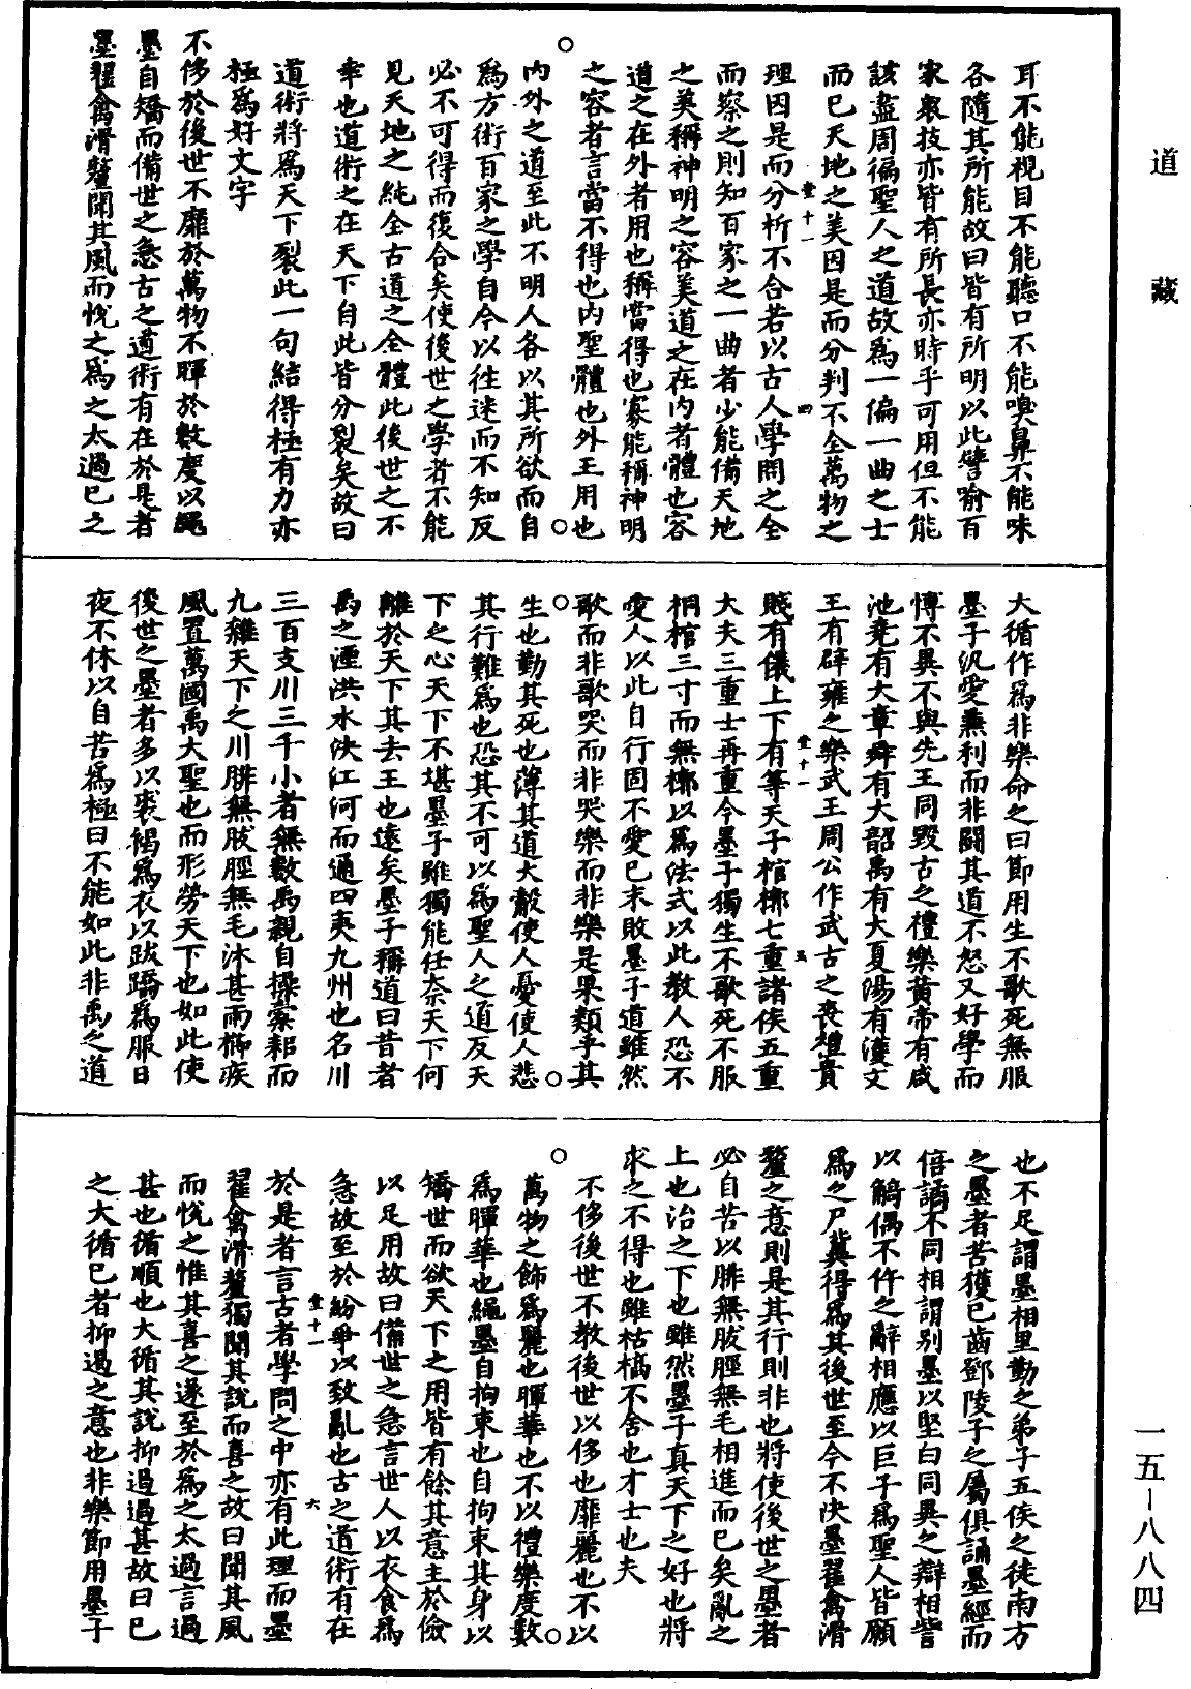 道藏
耳不能視目不能聽口不能嗅鼻不能味
各隨其所能故曰皆有所明以此譬喻百
家衆技亦皆有所長亦時乎可用但不能
該盡周徧聖人之道故爲一偏一曲之士
而已天地之美因是而分判不全萬物之
理因是而分析不合若以古人學問之全
而察之則知百家之一曲者少能備天地
之美稱神明之容美道之在內者體也容
道之在外者用也稱當得也寡能稱神明
之容者言當不得也內聖體也外王用也
內外之道至此不明人各以其所欲而自
爲方術百家之學自今以往迷而不知反
必不可得而復合矣使後世之學者不能
見天地之純全古道之全體此後世之不
幸也道術之在天下自此皆分裂矣故曰
道術將爲天下裂此一句結得極有力亦
極爲好文字
不侈於後世不靡於萬物不暉於數度以繩
墨自矯而備世之急古之道術有在於是者
墨翟禽滑釐聞其風而悅之爲之太過已之
大循作爲非樂命之曰節用生不歌死無服
墨子汎愛兼利而非鬪其道不怒又好學而
博不異不與先王同毀古之禮樂黃帝有咸
池堯有大章舜有大韶禹有大夏湯有濩文
王有辟雍之樂武王周公作武古之喪禮貴
賤有儀上下有等天子棺槨七重諸侯五重
大夫三重士再重今墨子獨生不歌死不服
桐棺三寸而無槨以爲法式以此教人恐不
愛人以此自行固不愛已未敗墨子道雖然
歌而非歌哭而非哭樂而非樂是果類乎其
生也勤其死也薄其道大觳使人憂使人悲
其行難爲也恐其不可以爲聖人之道反天
下之心天下不堪墨子雖獨能任奈天下何
離於天下其去王也遠矣墨子稱道曰昔者
禹之湮洪水決江河而通四夷九州也名川
三百支川三千小者無數禹親自操橐耜而
九雜天下之川腓無胈脛無毛沐甚雨櫛疾
風置萬國禹大聖也而形勞天下也如此使
後世之墨者多以裘褐爲衣以跋蹻爲服日
夜不休以自苦爲極曰不能如此非禹之道
也不足謂墨相里勤之弟子五侯之徒南方
之墨者苦獲已齒鄧陵子之屬俱誦墨經而
倍譎不同相謂別墨以堅白同異之辯相訾
以觭偶不仵之辭相應以巨子爲聖人皆願
爲之尸冀得爲其後世至今不決墨翟禽滑
釐之意則是其行則非也將使後世之墨者
必自苦以腓無胈脛無毛相進而已矣亂之
上也治之下也雖然墨子真天下之好也將
求之不得也雖枯槁不舍也才士也夫
不侈後世不教後世以侈也靡麗也不以
萬物之飾爲麗也暉華也不以禮樂度數
爲暉華也繩墨自拘束也自拘束其身以
矯世而欲天下之用皆有餘其意主於儉
以足用故曰備世之急言世人以衣食爲
急故至於紛爭以致亂也古之道術有在
於是者言古者學問之中亦有此理而墨
翟禽滑釐獨聞其說而喜之故曰聞其風
而悅之惟其喜之遂至於爲之太過言過
甚也循順也大循其說抑過過甚故曰已
之大循已者抑遏之意也非樂節用墨子
一五－八八四